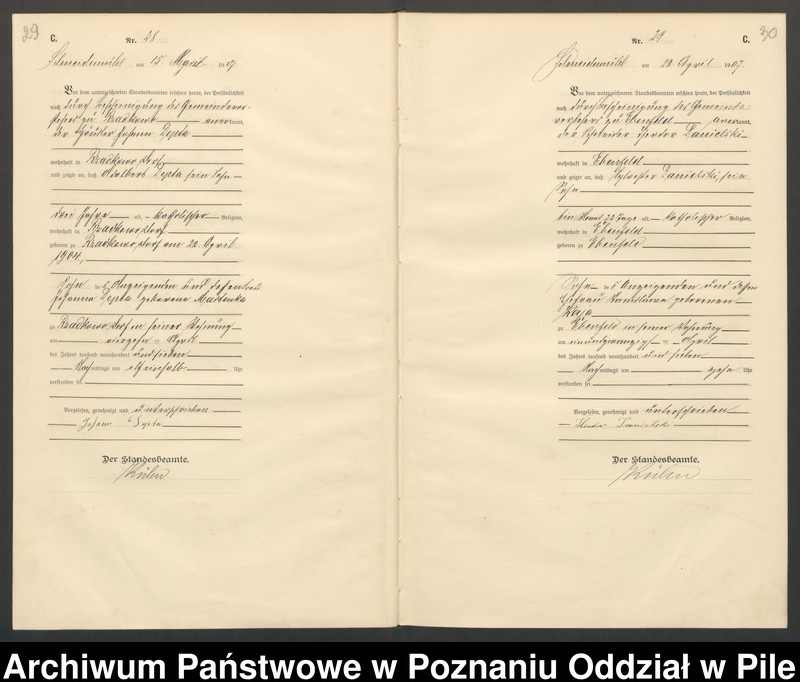 29
C.
Nr. 28
Schneidemühl am 15 April 1907
Vor dem unterzeichneten Standesbeamten erschien heute, der Persönlichkeit
nach durch Bescheinigung des Gemeindevor-
stehers zu anerkannt,
der Häusler Johann Depta
wohnhaft in Dorf
und zeigte an, daß Adalbert Depta sein Sohn
drei Jahre alt, katholischer Religion,
wohnhaft in Dorf
geboren zu Dorf am 20. April
1904,
Sohn des Anzeigenden und dessen
Johanna Depta geborene
zu Dorf in seiner Wohnung
am vierzehn = April
des Jahres tausend neunhundert und sieben
Nachmittags um Uhr
verstorben sei
Vorgelesen, genehmigt und unterschrieben
Johann Depta
Der Standesbeamte.
30
C.
Nr. 29
Schneidemühl am 22 April 1907.
Vor dem unterzeichneten Standesbeamten erschien heute, der Persönlichkeit
nach durch Bescheinigung des Gemeinde-
vorstehers zu Ebenfeld anerkannt,
der Theodor Danielski
wohnhaft in Ebenfeld
und zeigte an, daß Sylvester Danielski, sein
Sohn
ein Monat 22 Tage alt, katholischer Religion,
wohnhaft in Ebenfeld
geboren zu Ebenfeld
Sohn des Anzeigenden und dessen
Ehefrau geborenen
zu Ebenfeld in seiner Wohnung
am einundzwanzig = April
des Jahres tausend neunhundert und sieben
Nachmittags um zehn Uhr
verstorben sei
Vorgelesen, genehmigt und unterschrieben
Theodor Danielski
Der Standesbeamte.
Archiwum Państwowe w Poznaniu Oddział w Pile